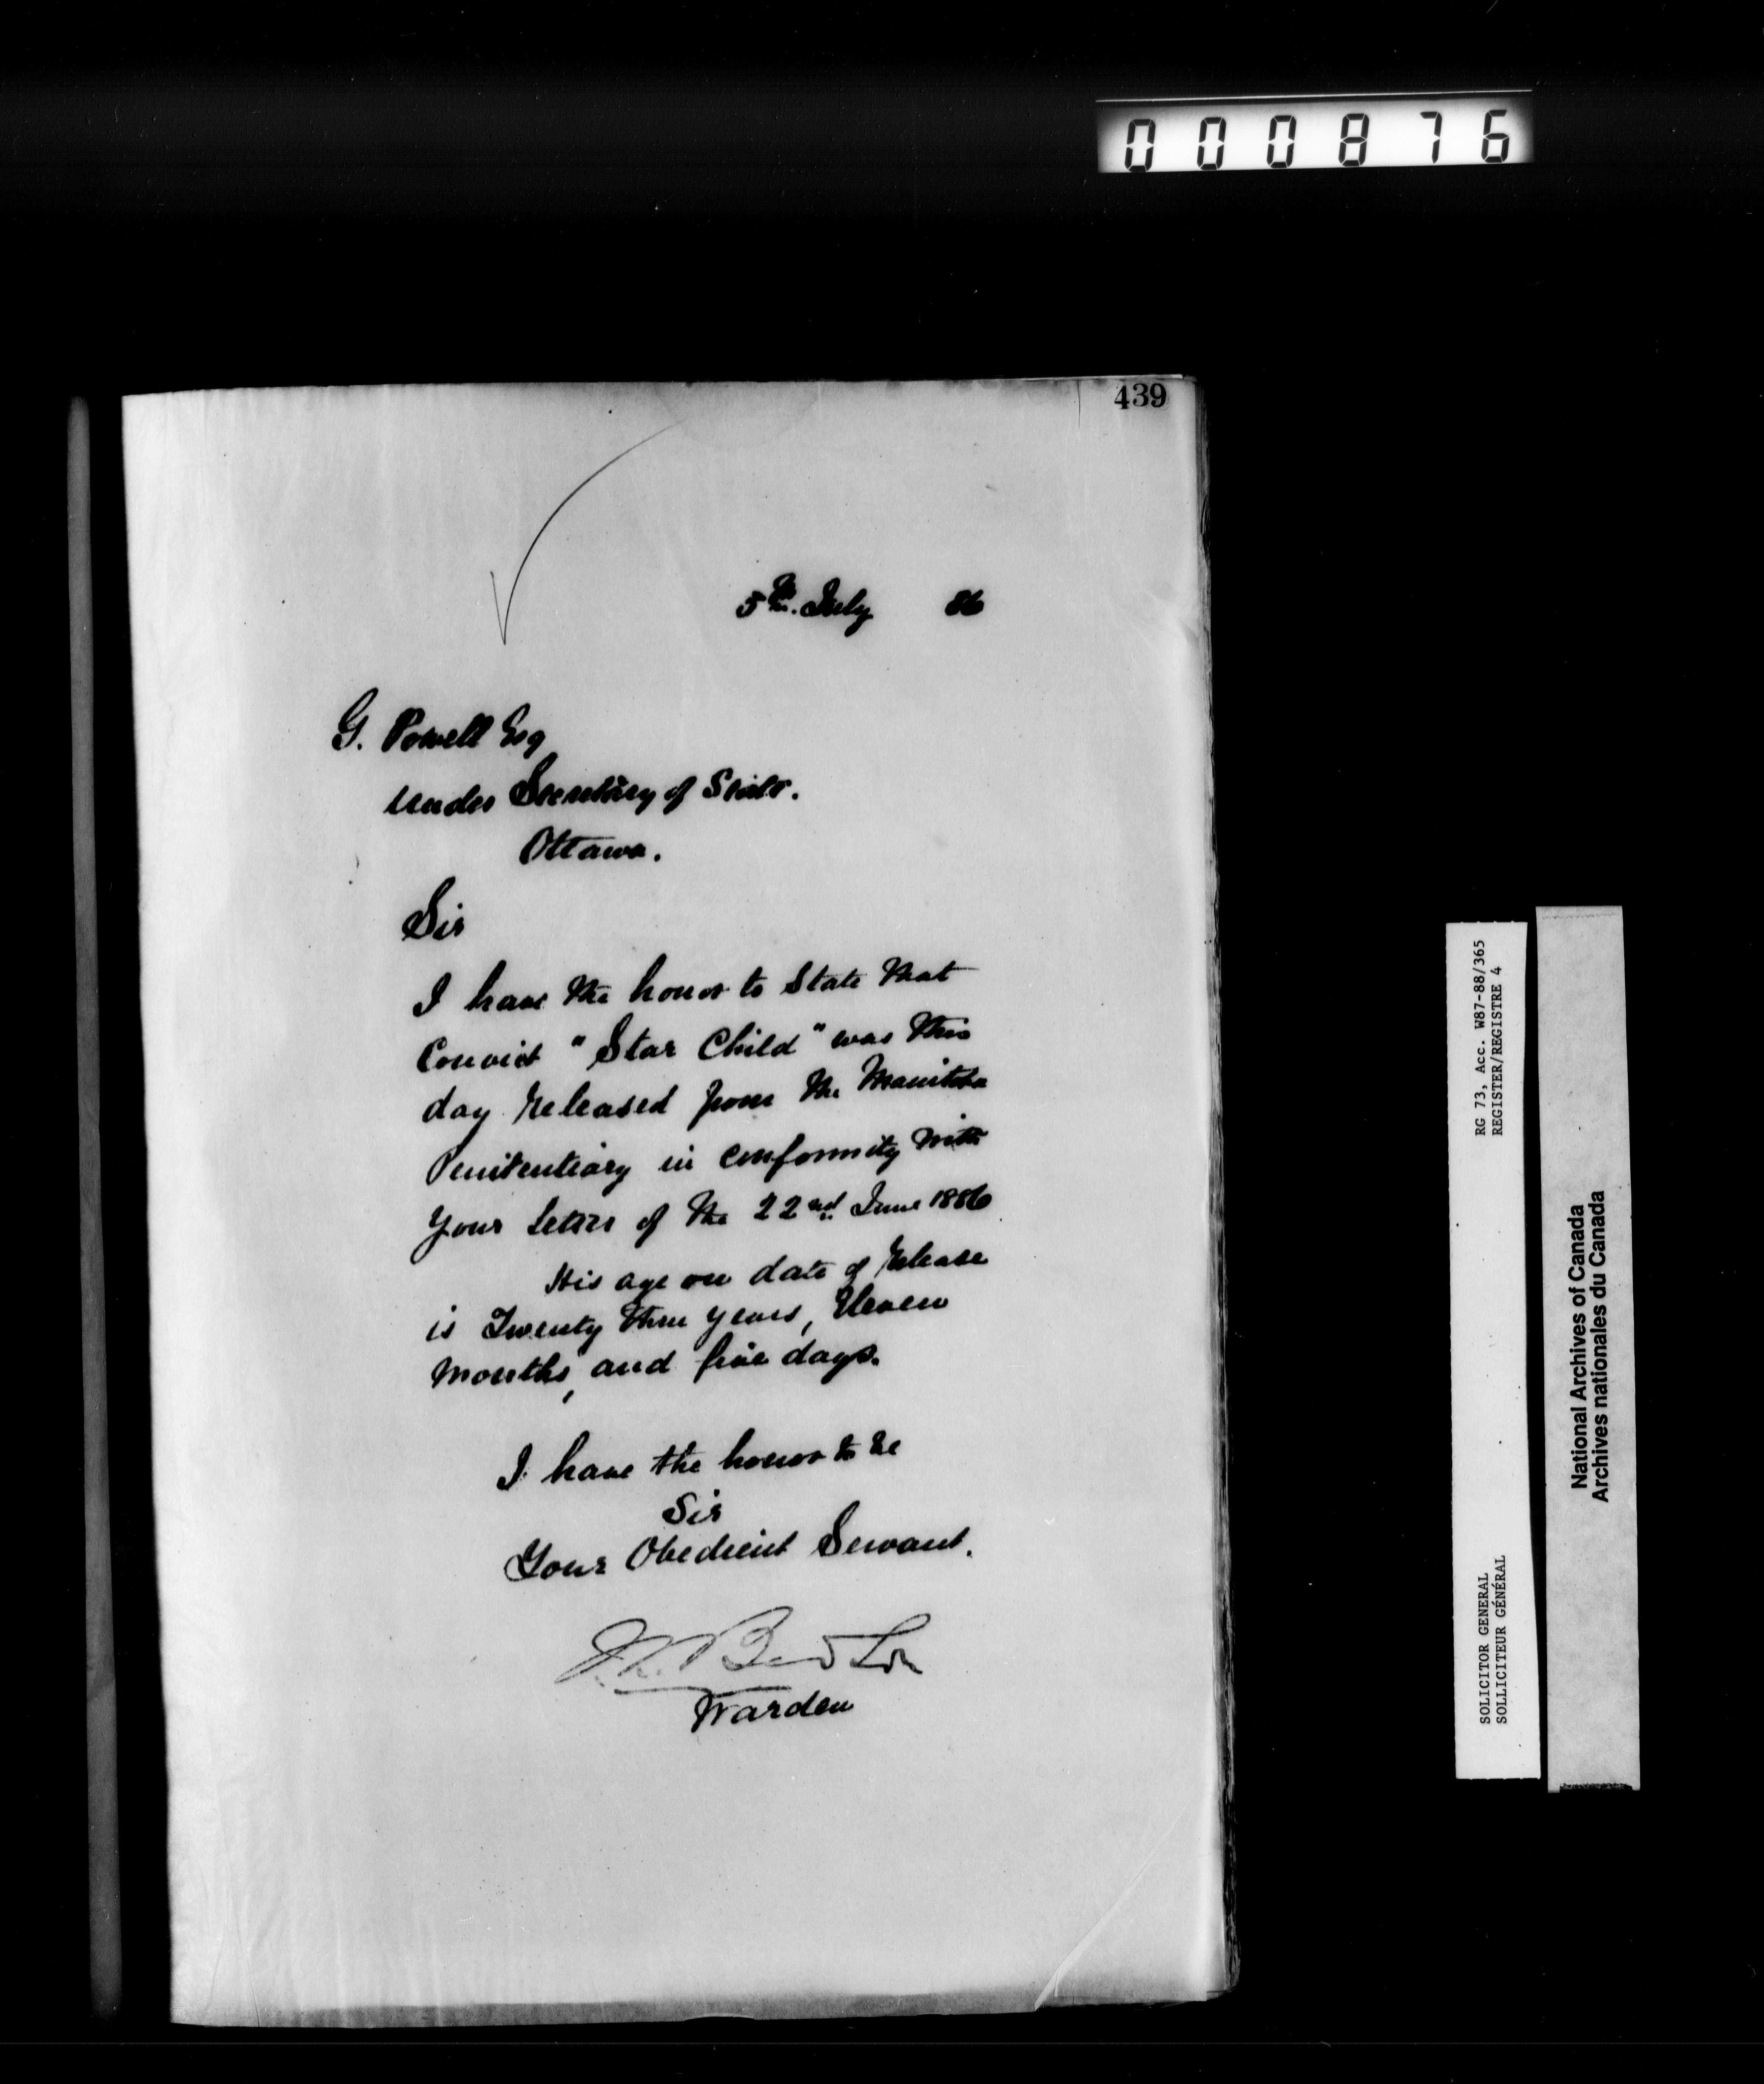 000876
439
5th. July 86
G. Powell Esq
Under Secretary of State.
Ottawa.
Sir
I have the honor to State that
Convict "Star Child" was this
day released from the Manitoba
Penitentiary in conformity with
your letter of the 22nd. June 1886
His age on date of release
is Twenty three years, Eleven
months, and five days.
I have the honor to be
Sir
Your Obedient Servant.
Warden
RG 73, Acc. W87-88/365
REGISTER/REGISTRE 4
SOLICITOR GENERAL
SOLLICITEUR GÉNÉRAL
National Archives of Canada
Archives nationales du Canada